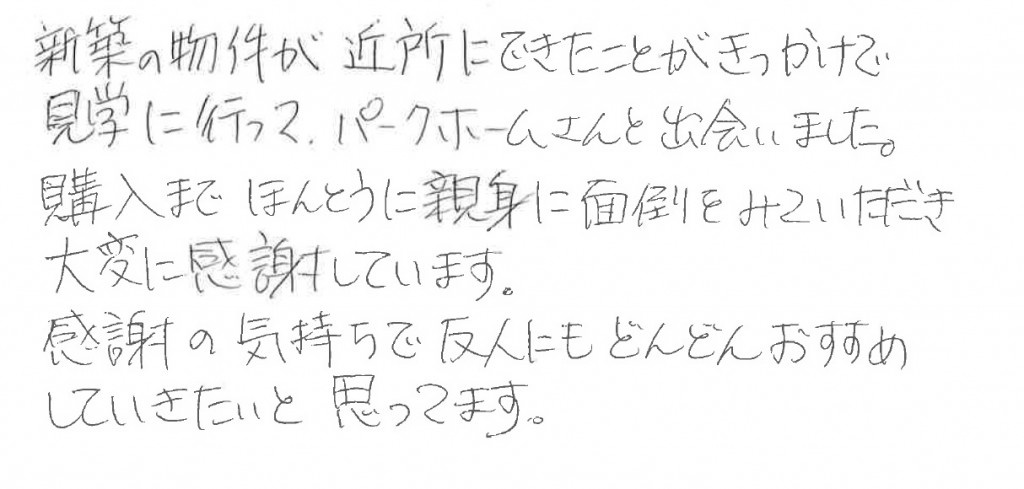 新築の物件が近所にできたことがきっかけで
見学に行って、パークホームさんと出会いました。
購入まで ほんとうに親身に面倒をみていただき
大変に感謝しています。
感謝の気持ちで友人にもどんどんおすすめ
していきたいと思ってます。